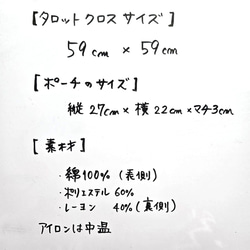 【タロットクロスサイズ】
59cm × 59cm
【ポーチのサイズ】
縦27cm × 横22cm × マチ3cm
【素材】
・綿100% (表側)
・ポリエステル 60%
・レーヨン 40% (裏側)
アイロンは中温